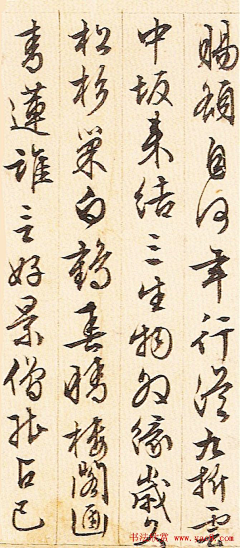 賜額自何年行從九折雲
中坂來結三生物外緣歲久
松杉巢白鶴春晴樓閣
青蓮誰言好景僧能占已
书法欣赏